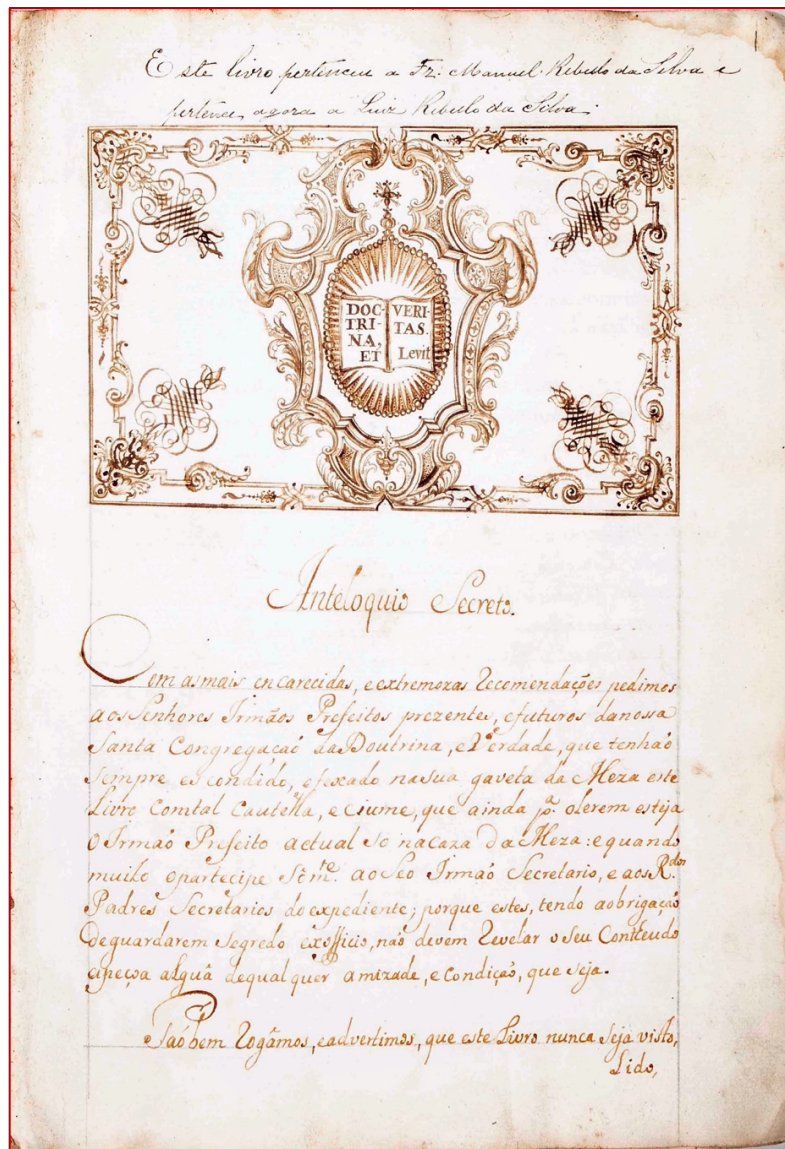 Este livro pertenceu a Fr. Manuel Rebello da Silva e
pertence agora a Luiz Rebello da Silva.
DOC-
TRI-
NA,
ET
VERI-
TAS.
Levit
Anteloquio Secreto.
Com as mais encarecidas, e extremozas Recomendações pedimos
aos Senhores Irmãos Prefeitos prezentes, e futuros danossa
Santa Congregaçaõ da Doutrina, e Verdade, que tenhaõ
sempre escondido, e fexado nasua gaveta da Meza este
Livro comtal Cautella, e Ciume, que ainda pª. olerem esteja
o Irmaõ Prefeito actual so nacaza da Meza: equando
muito opartecipe Sómte. ao Seo Irmaõ Secretario, e aos Rdos
Padres Secretarios do expediente; porque estes, tendo aobrigaçaõ
deguardarem Segredo exofficio, naõ devem Revelar o Seu Contheudo
apeçoa alguã dequalquer amizade, e Condiçaõ, que seja.
Taõbem Rogâmos, eadvertimos, que este Livro nunca seja visto,
Lido,